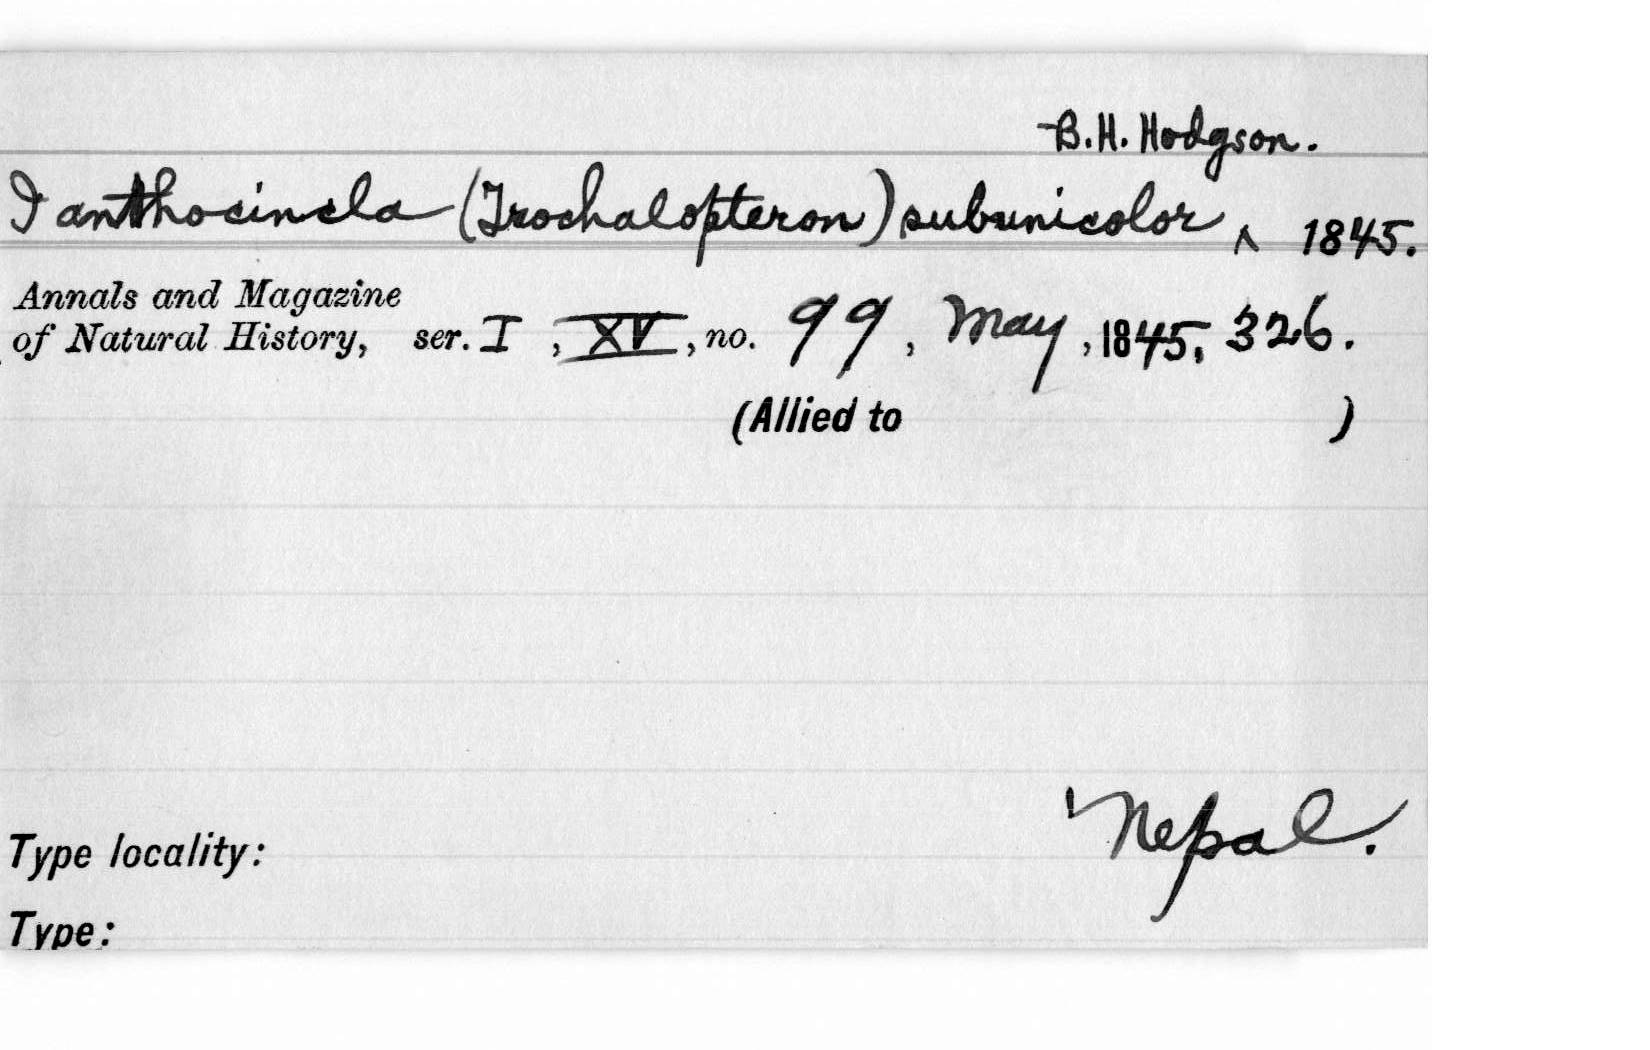 B.H. Hodgson.
Ianthocincla (Trochalopteron) subunicolor ^ 1845.
Annals and Magazine
of Natural History, ser. I, XV, no. 99, May, 1845, 326.
(Allied to )
Nepal.
Type locality:
Type: